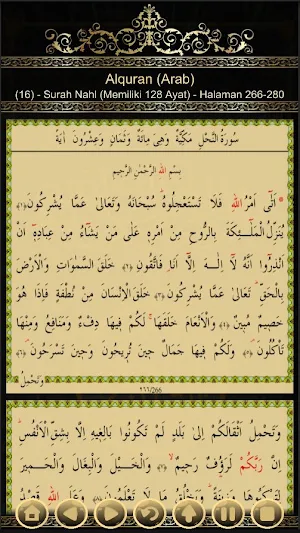 Alquran (Arab)
(16) - Surah Nahl (Memiliki 128 Ayat) - Halaman 266-280
سُورَةُ النَّحْلِ مَكِّيَّةٌ وَهِىَ مِائَةٌ وَثَمَانٍ وَعِشْرُونَ اٰيَةً
بِسْمِ اللهِ الرَّحْمٰنِ الرَّحِيمِ
اَتٰٓى اَمْرُ اللهِ فَلَا تَسْتَعْجِلُوهُ سُبْحَانَهُ وَتَعَالىٰ عَمَّا يُشْرِكُونَ ﴿١﴾
يُنَزِّلُ الْمَلٰٓئِكَةَ بِالرُّوحِ مِنْ اَمْرِهِ عَلٰى مَنْ يَشَٓاءُ مِنْ عِبَادِهِٓ اَنْ
اَنْذِرُٓوا اَنَّهُ لَٓا اِلٰهَ اِلَّٓا اَنَا۬ فَاتَّقُونِ ﴿٢﴾ خَلَقَ السَّمٰوَاتِ وَالْاَرْضَ
بِالْحَقِّ تَعَالىٰ عَمَّا يُشْرِكُونَ ﴿٣﴾ خَلَقَ الْاِنْسَانَ مِنْ نُطْفَةٍ فَاِذَا هُوَ
خَصِيمٌ مُبِينٌ ﴿٤﴾ وَالْاَنْعَامَ خَلَقَهَا لَكُمْ فِيهَا دِفْءٌ وَمَنَافِعُ وَمِنْهَا
تَأْكُلُونَ ﴿٥﴾ وَلَكُمْ فِيهَا جَمَالٌ حِينَ تُرِيحُونَ وَحِينَ تَسْرَحُونَ ﴿٦﴾
وَتَحْمِلُ
٢٦٦/266
وَتَحْمِلُ اَثْقَالَكُمْ اِلٰى بَلَدٍ لَمْ تَكُونُوا بَالِغِيهِ اِلَّا بِشِقِّ الْاَنْفُسِ
اِنَّ رَبَّكُمْ لَرَؤُ۫فٌ رَحِيمٌ ﴿٧﴾ وَالْخَيْلَ وَالْبِغَالَ وَالْحَمِيرَ
لِتَرْكَبُوهَا وَزِينَةً وَيَخْلُقُ مَا لَا تَعْلَمُونَ ﴿٨﴾ وَعَلَى اللهِ قَصْدُ